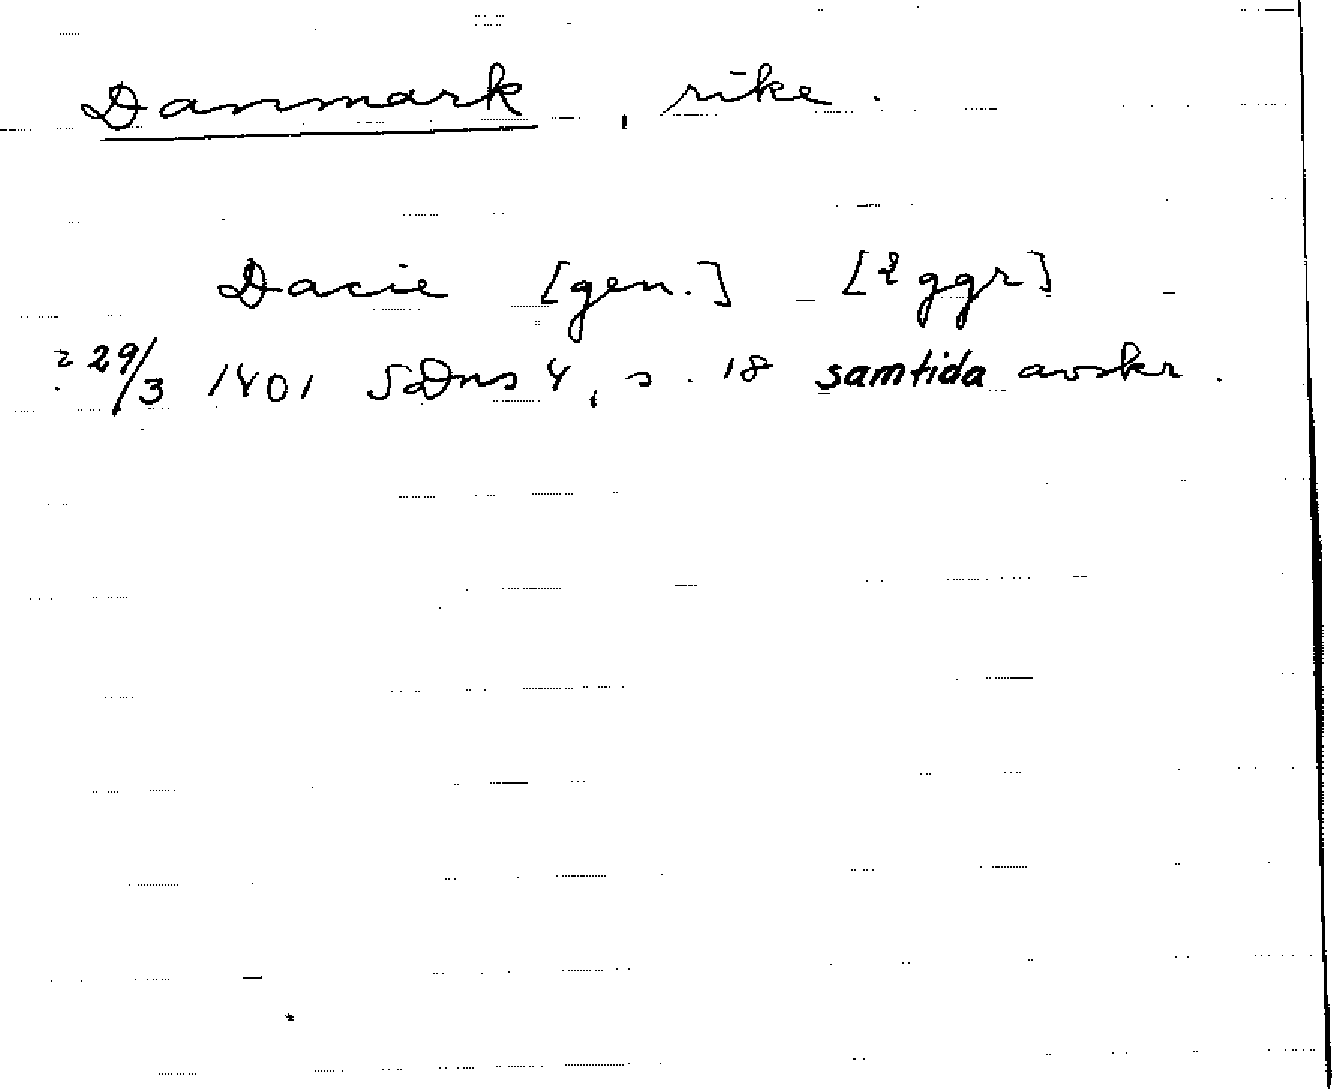 Danmark, rike.
Dacie [gen.] [2 ggr]
? 29/3 1401 SDns 4, s. 18 samtida avskr.